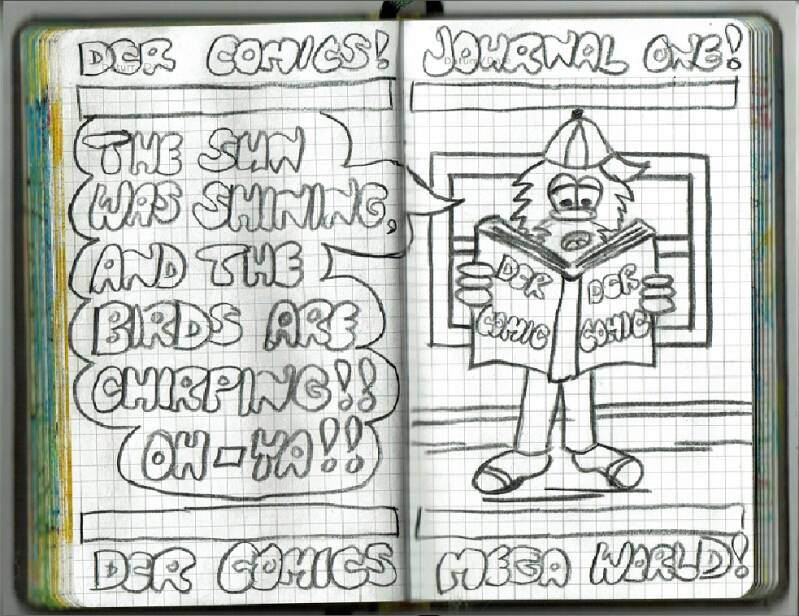 DER COMICS!
THE SUN
WAS SHINING,
AND THE
BIRDS ARE
CHIRPING!!
OH-YA!!
DER COMICS
JOURNAL ONE!
DER
COMIC
DER
COMIC
MEGA WORLD!